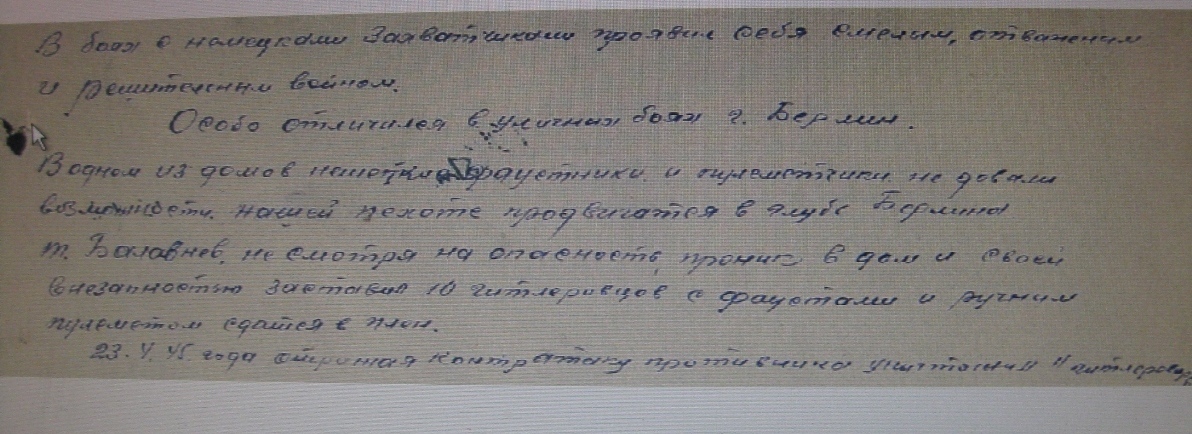 В боях с немецкими захватчиками проявил себя смелым, отважным
и решительным войном.
Особо отличился в уличных боях г. Берлин.
В одном из домов немецкие фаустники и пулеметчики не довали
возможности нашей пехоте продвигатся в глубь Берлина
т. Балавнев, не смотря на опасность проник в дом и своей
внезапностью заставил 10 гитлеровцов с фаустами и ручным
пулеметом сдатся в плен.
23.4.45 года отражая контратаку противника уничтожил 11 гитлеровц